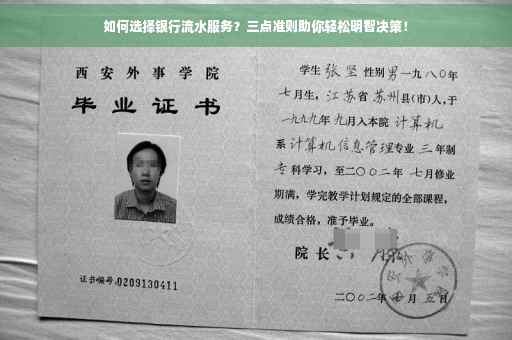 如何选择银行流水服务？三点准则助你轻松明智决策！
西安外事学院
毕业证书
证书编号:0209130411
学生张坚性别男一九八〇年
七月生，江苏省苏州县(市)人,于
一九九九年九月入本院计算机
系计算机信息管理专业三年制
专科学习，至二〇〇二年七月修业
期满，学完教学计划规定的全部课程，
成绩合格，准予毕业。
院长
二〇〇二年 月五日